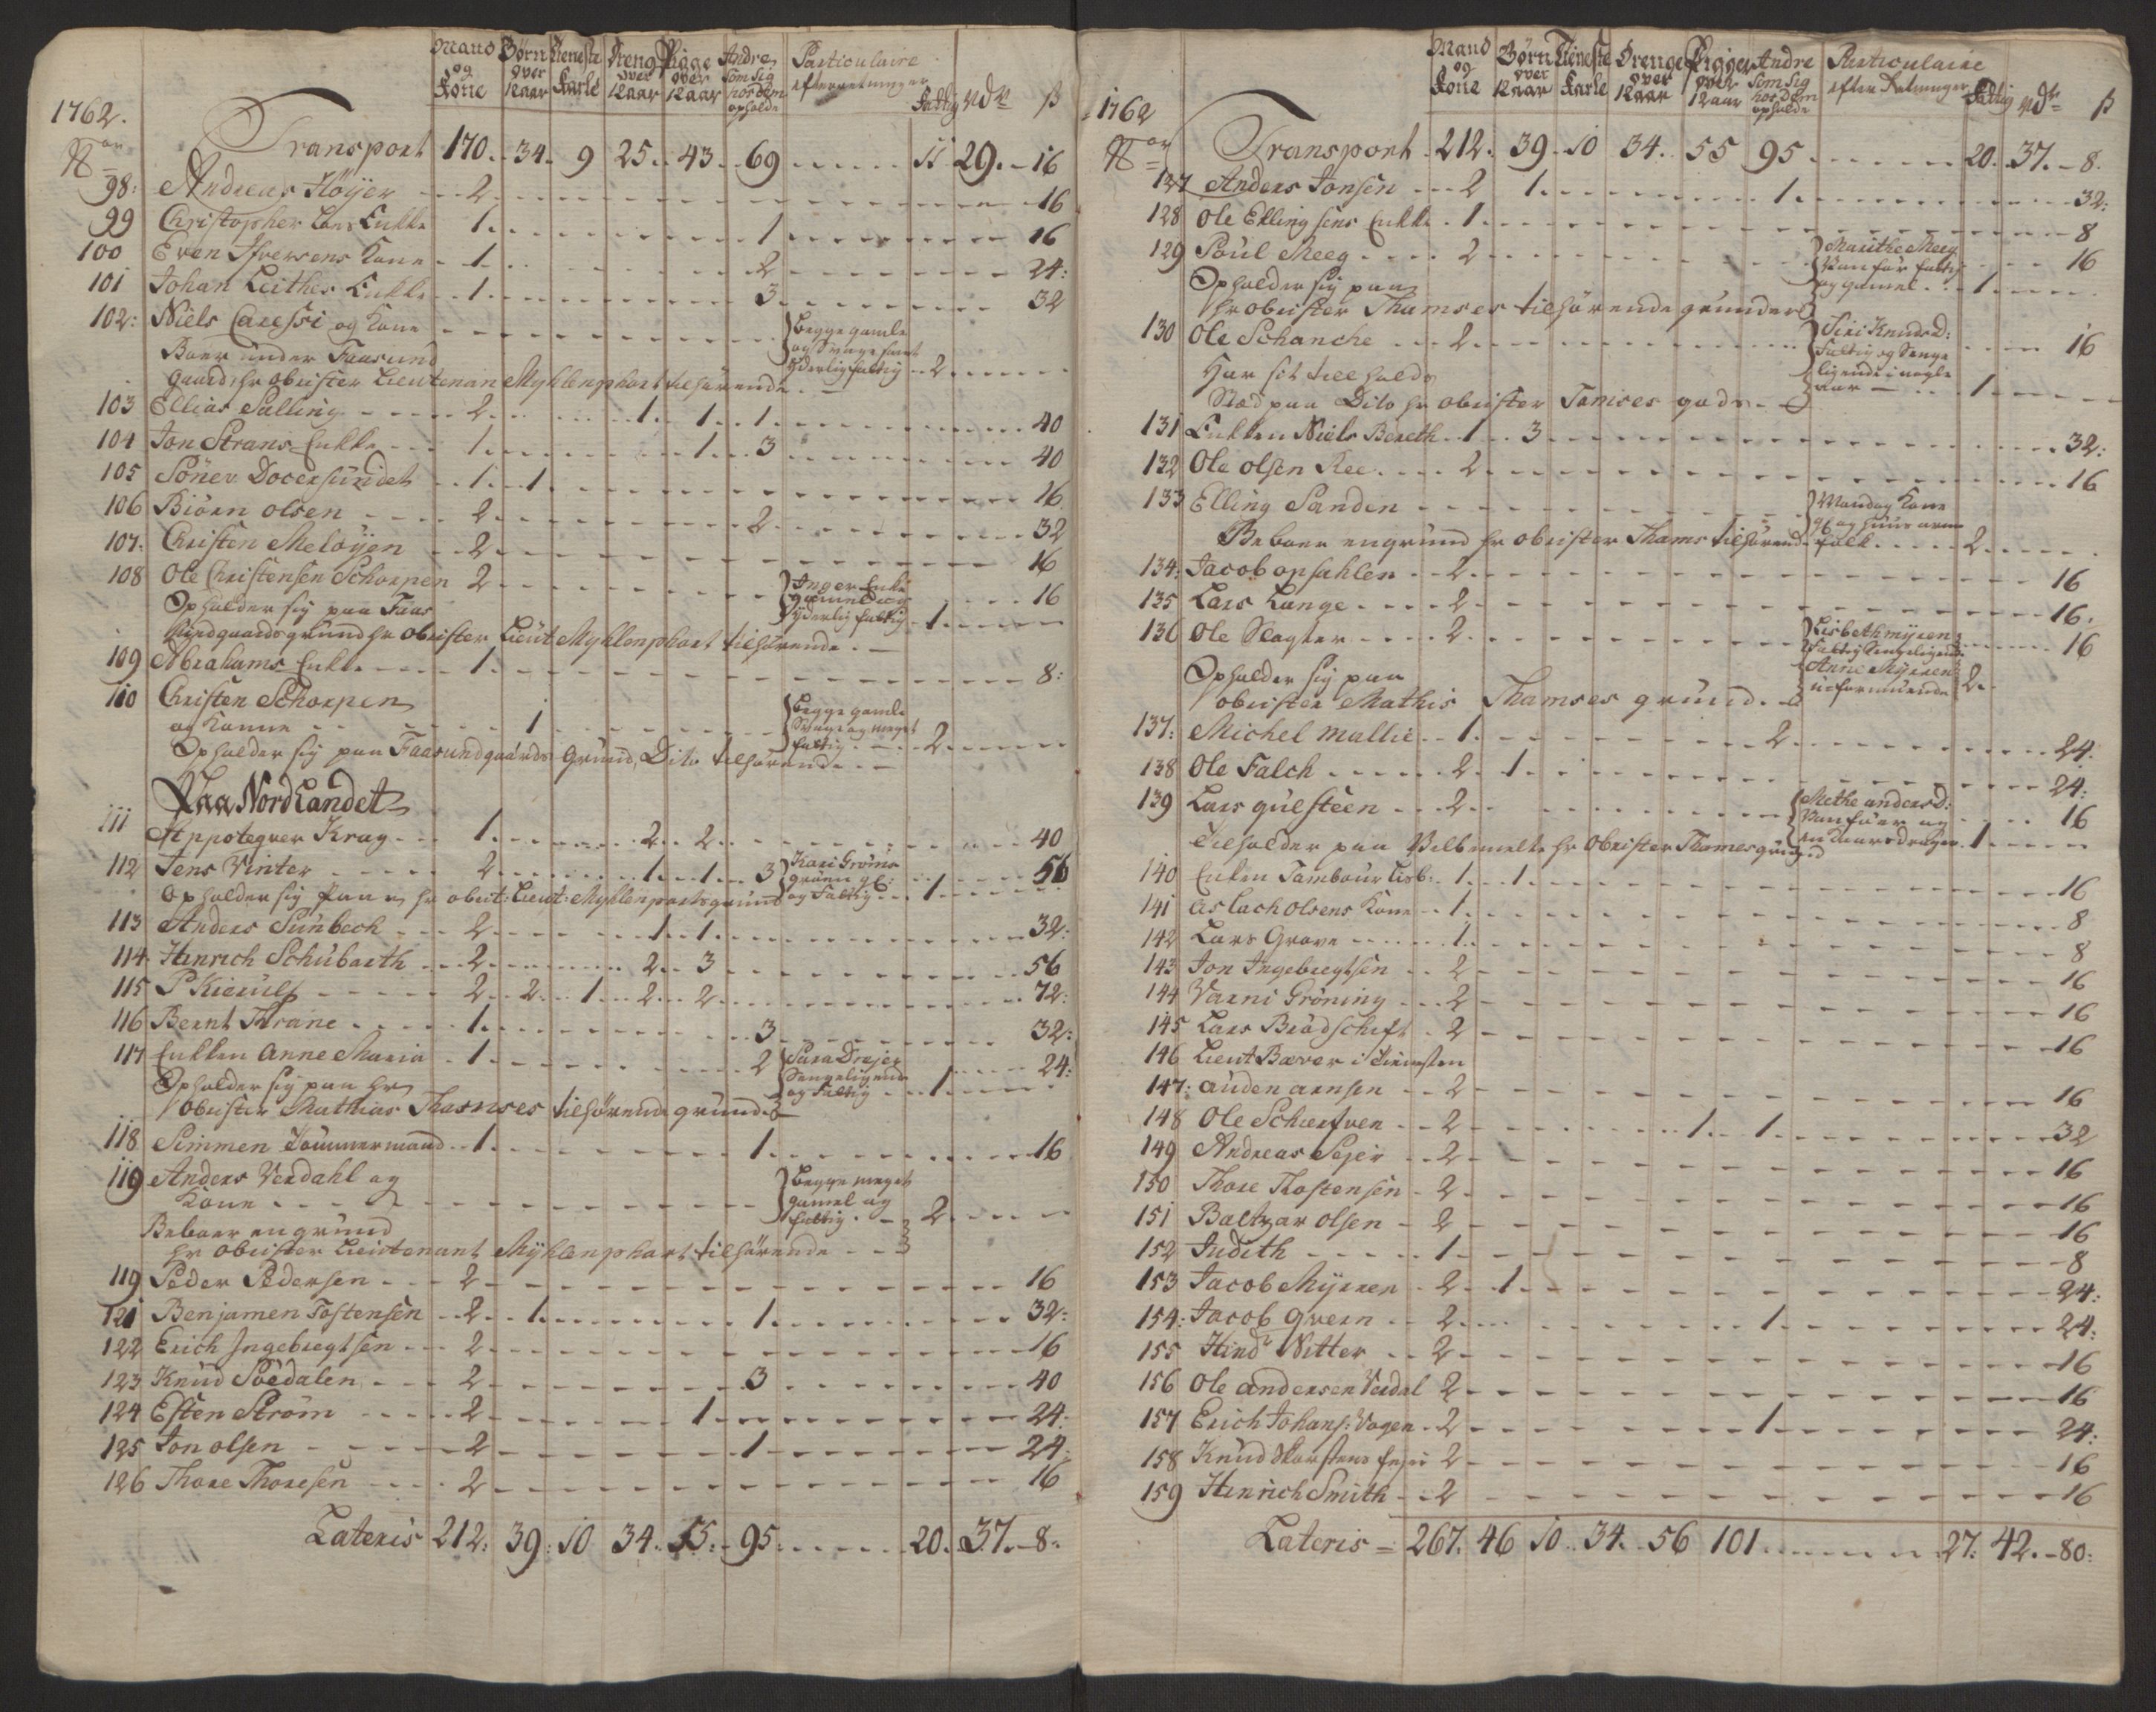 1762.
Mand og Kone | Børn over 12 aar | Tieneste Karle | Dreng over 12 aar | Pigge over 12 aar | Andre Som sig hos dem opholde | Particulaire efterretninger | Fattig | Rdr | ß
Nor
Transport 170. 34. 9 25. 43. 69 11 29. 16
98: Andreas Høyer 2 16
99 Christopher Enkke 1 1 16
100 Even Ifversens Kone 1 2 24:
101 Johan Leithes Enkke 1 3 32
102: Niels Caressi og Kone
Begge gamle og Svage samt yderlig fattig 2
Boer under Faasund
gaard hr obrister Lieutenan Myhlenphort tilhørende
103 Ellias Salling 2 1 1 1 40
104 Jon Strans Enkke 1 1 3 40
105 Söner Docersundet 1 1 16
106 Biörn olsen 2 2 32
107: Christen Meløyen 2 16
108 Ole Christensen Schorpen 2 16
Inger Enke gammel og yderlig fattig 1
Opholder sig paa Faas
Sundgaards grund hr obrister Lieut Myhlenphort tilhørende
109 Abrahams Enkke 1 8:
110 Christen Schorpen
og Konne 1
Begge gamle Svag og meget fattig 2
Opholder sig paa Faasundgaards Grund, Dito tilhørende
Paa NordLandet
111 Appoteqver Krag 1 2 2 40
112 Jens Vinter 2 1 1 3 56
Kari Gröns og Fattig 1
Opholder sig Paa hr obrist: Lieut: Myhlenports grund
113 Anders Sunbech 2 1 1 32:
114 Hinrich Schübarth 2 2 3 56
115 P Kierulf 2 2 1 2 2 72:
116 Bernt Thrane 1 3 32:
117 Enkken Anne Maria 1 2 24:
Sara Drejer Sengeligende og Fattig 1
Opholder sig paa hr
obrister Mathias Thamses tilhørende grund
118 Simmen Tömmermand 1 1 16
119 Anders Verdahl og
Kone
Begge meget gamel og fattig 2
Beboer en grund
hr obrister Leutenant Myhlenphort tilhørende
119 Peder Pedersen 2 16
121 Benjamen Tostensen 2 1 1 32:
122 Erich Ingebregtsen 2 16
123 Knud Söedalen 2 3 40
124 Esten Ström 2 1 24:
125 Jon olsen 2 1 24:
126 Thore Thoresen 2 16
Lateris 212: 39: 10 34. 55. 95 20. 37. 8.
1762
Mand og Kone | Børn over 12 aar | Tieneste Karle | Drenge over 12 aar | Pigger over 12 aar | Andre Som sig hos Dem opholde | Particulaire efter Retninger | Fattig | Rdr | ß
Nor
Transport 212. 39 10 34. 55 95 20. 37. 8.
127 Anders Jonsen 2 1 1 32:
128 Ole Ellingsens Enkke 1 8
129 Poul Meeg 2 16
Marithe Meeg Vanfør fattig og gamel 1
Opholder sig paa
hr obrister Thamses tilhørende grunder
130 Ole Schanche 2 16
Siri Knudsd: Fattig og Senge ligende i nogle aar 1
Har sit till hold
Sted paa Dito hr obrister Tamses gods
131 Enkken Niels Bereth 1 3 32:
132 Ole olsen Ree 2 16
133 Elling Sanden
Mand og Kone og huus arme folk 2
Beboer en grund hr obrister Thams tilhørend
134: Jacob opsahlen 2 16
135 Lars Lange 2 16.
136 Ole Slagter 2 16
Lisbeth myren fattig Sengeligend Anne Myren uformuende 2
Opholder sig paa
obrister Mathis Thamses grund
137: Michel mallie 1 2 24:
138 Ole Falch 2 1 24:
139 Lars gulsteen 2 16
Methe andersd: Vanföer og 1
Tilholder paa Velbemelte hr Obrister Thames grund
140 Enken Tambour Lisb: 1 1 16
141 aslach olsens Kone 1 8
142 Lars Grave 1 8
143 Jon Ingebregtsen 2 16
144 Varni Gröning 2 16
145 Lars Brödschift 2 16
146 Lieut Bæver i Tienesten
147: auden arnsen 2 16
148 Ole Schierfven 2 1 1 32
149 Andreas Sejer 2 16
150 Thore Thostensen 2 16
151 Baltzar olsen 2 16
152 Judith 1 8
153 Jacob Myrren 2 1 24:
154: Jacob qvern 2 1 24:
155 Hindr Nitter 2 16
156 Ole andersen Verdal 2 16
157 Erich Johans: Vogen 2 1 24:
158 Knud Skorstens fejer 2 16
159 Hinrich Smith 2 16
Lateris 267. 46 10 34. 56 101 27: 42. 80: